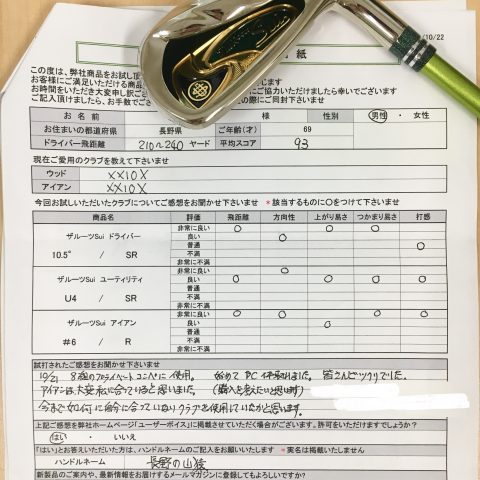 紙
10/22
この度は、弊社商品をお試し頂
お客様にご満足いただける商品
お時間をいただき大変申し訳ご にご協力いただけましたら幸いでございます
ご記入頂けましたら、お手数で の際にご同封下さいませ
お 名 前 様 性別 男性 ・ 女性
お住まいの都道府県 長野県 ご年齢(才) 69
ドライバー飛距離 210~240 ヤード 平均スコア 93
現在ご愛用のクラブを教えて下さいませ
ウッド XX10X
アイアン XX10X
今回お試しいただいたクラブについてご感想をお聞かせ下さいませ *該当するものに○をつけて下さいませ
商品名 評価 飛距離 方向性 上がり易さ つかまり易さ 打感
ザルーツSui ドライバー
10.5° / SR
非常に良い ○ ○ ○
良い ○
普通 ○
不満
非常に不満
ザルーツSui ユーティリティ
U4 / SR
非常に良い ○
良い ○ ○ ○ ○
普通
不満
非常に不満
ザルーツSui アイアン
#6 / R
非常に良い ○ ○ ○ ○
良い ○
普通
不満
非常に不満
試打されたご感想をお聞かせ下さいませ
10/21 8組のプライベートコンペに使用。 始めて PC 取れました。 皆さんビックリでした。
アイアンは大変私に合っていると思いました。 (購入を考えたいと思います)
今まで如何に自分に合っていないクラブを使用していたかと思います。
上記ご感想を弊社ホームページ「ユーザーボイス」に掲載させていただく場合がございます。許可をいただけますでしょうか?
はい ・ いいえ
「はい」とお答えいただいた方は、ハンドルネームのご記入をお願いいたします *実名は掲載いたしません
ハンドルネーム 長野の山猿
新製品のご案内や、最新情報をお届けするメールマガジンに登録してもよろしいですか?